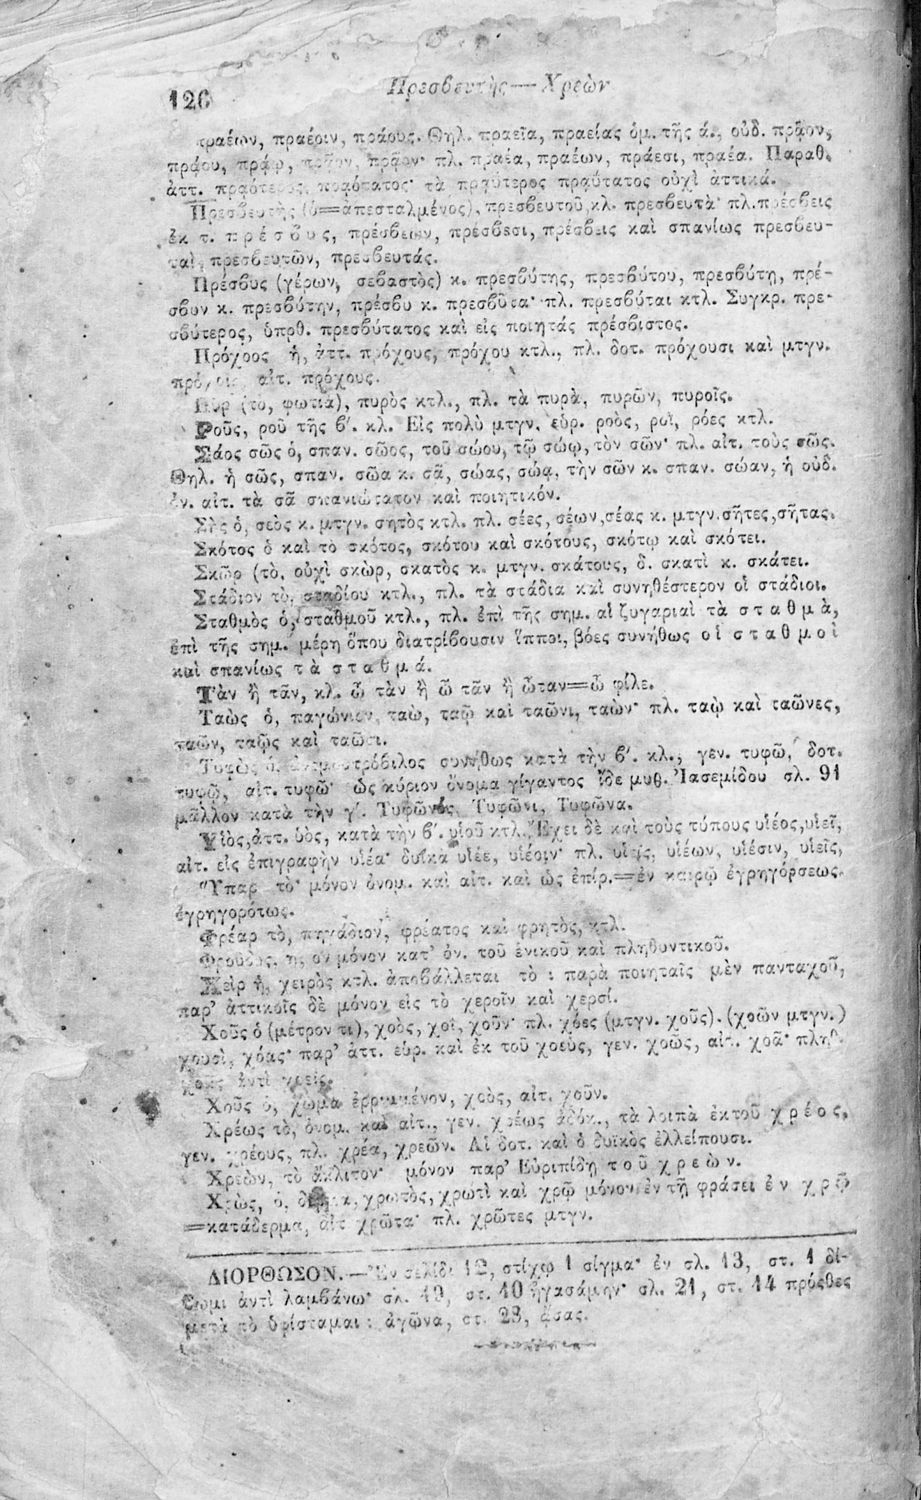 126
Πρεσβευτὴς — Χρεὼν
πραέων, πραέοιν, πράους. Θηλ. πραεῖα, πραείας ὁμ. τῆς ά., οὐδ. πρᾶον,
πράου, πράῳ, πρᾶον, πρᾶον· πλ. πραέα, πραέων, πράεσι, πραέα. Παραθ.
ἀττ. πραότερος, πραότατος· τὰ πραΰτερος πραΰτατος οὐχὶ ἀττικά.
Πρεσβευτὴς (ὁ=ἀπεσταλμένος), πρεσβευτοῦ, κλ. πρεσβευτὰ· πλ. πρέσβεις
ἐκ τ. πρέσβυς, πρέσβεων, πρέσβεσι, πρέσβεις καὶ σπανίως πρεσβευ-
ταὶ, πρεσβευτῶν, πρεσβευτάς.
Πρέσβυς (γέρων, σεβαστὸς) κ. πρεσβύτης, πρεσβύτου, πρεσβύτῃ, πρέ-
σβυν κ. πρεσβύτην, πρέσβυ κ. πρεσβῦτα· πλ. πρεσβύται κτλ. Συγκρ. πρε-
σβύτερος, ὑπρθ. πρεσβύτατος καὶ εἰς ποιητάς πρέσβιστος.
Πρόχοος ἡ, ἀττ. πρόχους, πρόχου κτλ., πλ. δοτ. πρόχουσι καὶ μτγν.
αἰτ. πρόχους.
Πῦρ (τὸ, φωτιὰ), πυρὸς κτλ., πλ. τὰ πυρὰ, πυρῶν, πυροῖς.
Ῥοῦς, ροῦ τῆς β΄. κλ. Εἰς πολὺ μτγν. εὑρ. ροὸς, ροῒ, ρόες κτλ.
Σάος σῶς ὁ, σπαν. σῶος, τοῦ σώου, τῷ σώῳ, τὸν σῶν· πλ. αἰτ. τοὺς σῶς.
Θηλ. ἡ σῶς, σπαν. σῶα κ. σᾶ, σώας, σώᾳ, τὴν σῶν κ. σπαν. σώαν, ἡ οὐδ.
ἑν. αἰτ. τὰ σᾶ σπανιώτατον καὶ ποιητικόν.
Σὴς ὁ, σεὸς κ. μτγν. σητὸς κτλ. πλ. σέες, σέων, σέας κ. μτγν. σῆτες, σῆτας.
Σκότος ὁ καὶ τὸ σκότος, σκότου καὶ σκότους, σκότῳ καὶ σκότει.
Σκῶρ (τὸ, οὐχὶ σκὼρ, σκατὸς κ. μτγν. σκάτους, δ. σκατὶ κ. σκάτει.
Στάδιον τὸ, σταδίου κτλ., πλ. τὰ στάδια καὶ συνηθέστερον οἱ στάδιοι.
Σταθμὸς ὁ, σταθμοῦ κτλ., πλ. ἐπὶ τῆς σημ. αἱ ζυγαριαὶ τὰ σταθμὰ,
ἐπὶ τῆς σημ. μέρη ὅπου διατρίβουσιν ἵπποι, βόες συνήθως οἱ σταθμοὶ
καὶ σπανίως τὰ σταθμά.
Τὰν ἢ τᾶν, κλ. ὦ τὰν ἢ ὦ τᾶν ἢ ὦταν=ὦ φίλε.
Ταὼς ὁ, παγώνιον, ταὼ, ταῷ καὶ ταῶνι, ταὼν· πλ. ταῲ καὶ ταῶνες,
ταῶν, ταῷς καὶ ταῶσι.
Τυφὼς ὁ, ἀνεμοστρόβιλος συνήθως κατὰ τὴν β΄. κλ., γεν. τυφῶ, δοτ.
τυφῷ, αἰτ. τυφῶ· ὡς κύριον ὄνομα γίγαντος ἴδε μυθ. Ἰασεμίδου σλ. 91
μᾶλλον κατὰ τὴν γ΄. Τυφῶνος, Τυφῶνι, Τυφῶνα.
Υἱὸς, ἀττ. ὑὸς, κατὰ τὴν β΄. υἱοῦ κτλ. Ἔχει δὲ καὶ τοὺς τύπους υἱέος, υἱεῖ,
αἰτ. εἰς ἐπιγραφὴν υἱέα· δυϊκὰ υἱέε, υἱέοιν· πλ. υἱεῖς, υἱέων, υἱέσιν, υἱεῖς,
Ὕπαρ τὸ· μόνον ὀνομ. καὶ αἰτ. καὶ ὡς ἐπίρ.=ἐν καιρῷ ἐγρηγόρσεως.
ἐγρηγορότως.
Φρέαρ τὸ, πηγάδιον, φρέατος καὶ φρητὸς, κτλ.
Φροῦδος, η, ον μόνον κατ' ὀν. τοῦ ἑνικοῦ καὶ πληθυντικοῦ.
Χεὶρ ἡ, χειρὸς κτλ. ἀποβάλλεται τὸ ι παρὰ ποιηταῖς μὲν πανταχοῦ,
παρ' ἀττικοῖς δὲ μόνον εἰς τὸ χεροῖν καὶ χερσί.
Χοῦς ὁ (μέτρον τι), χοὸς, χοῒ, χοῦν· πλ. χόες (μτγν. χοῦς). (χοῶν μτγν.)
χουσὶ, χόας· παρ' ἀττ. εὑρ. καὶ ἐκ τοῦ χοεὺς, γεν. χοῶς, αἰτ. χοᾶ· πληθ.
ἀντὶ χοεῖς.
Χοῦς ὁ, χῶμα ἐρριμμένον, χοὸς, αἰτ. χοῦν.
Χρέως τὸ, ὀνομ. καὶ αἰτ., γεν. χρέως ἀδόκ., τὰ λοιπὰ ἐκτοῦ χρέος,
γεν. χρέους, πλ. χρέα, χρεῶν. Αἱ δοτ. καὶ ὁ δυϊκὸς ἐλλείπουσι.
Χρεὼν, τὸ ἄκλιτον· μόνον παρ' Εὐριπίδῃ τοῦ χρεών.
Χρὼς, ὁ, δέρμα, χρωτὸς, χρωτὶ καὶ χρῷ μόνον ἐν τῇ φράσει ἐν χρῷ
=κατάδερμα, αἰτ χρῶτα· πλ. χρῶτες μτγν.
ΔΙΟΡΘΩΣΟΝ.—Ἐν σελίδι 12, στίχῳ 1 σίγμα· ἐν σλ. 13, στ. 1 δί-
δωμι ἀντὶ λαμβάνω· σλ. 19, στ. 10 ἠγασάμην· σλ. 21, στ. 14 πρόσθες
μετὰ τὸ ὑφίσταμαι : ἀγῶνα, στ. 23, ᾄσας.